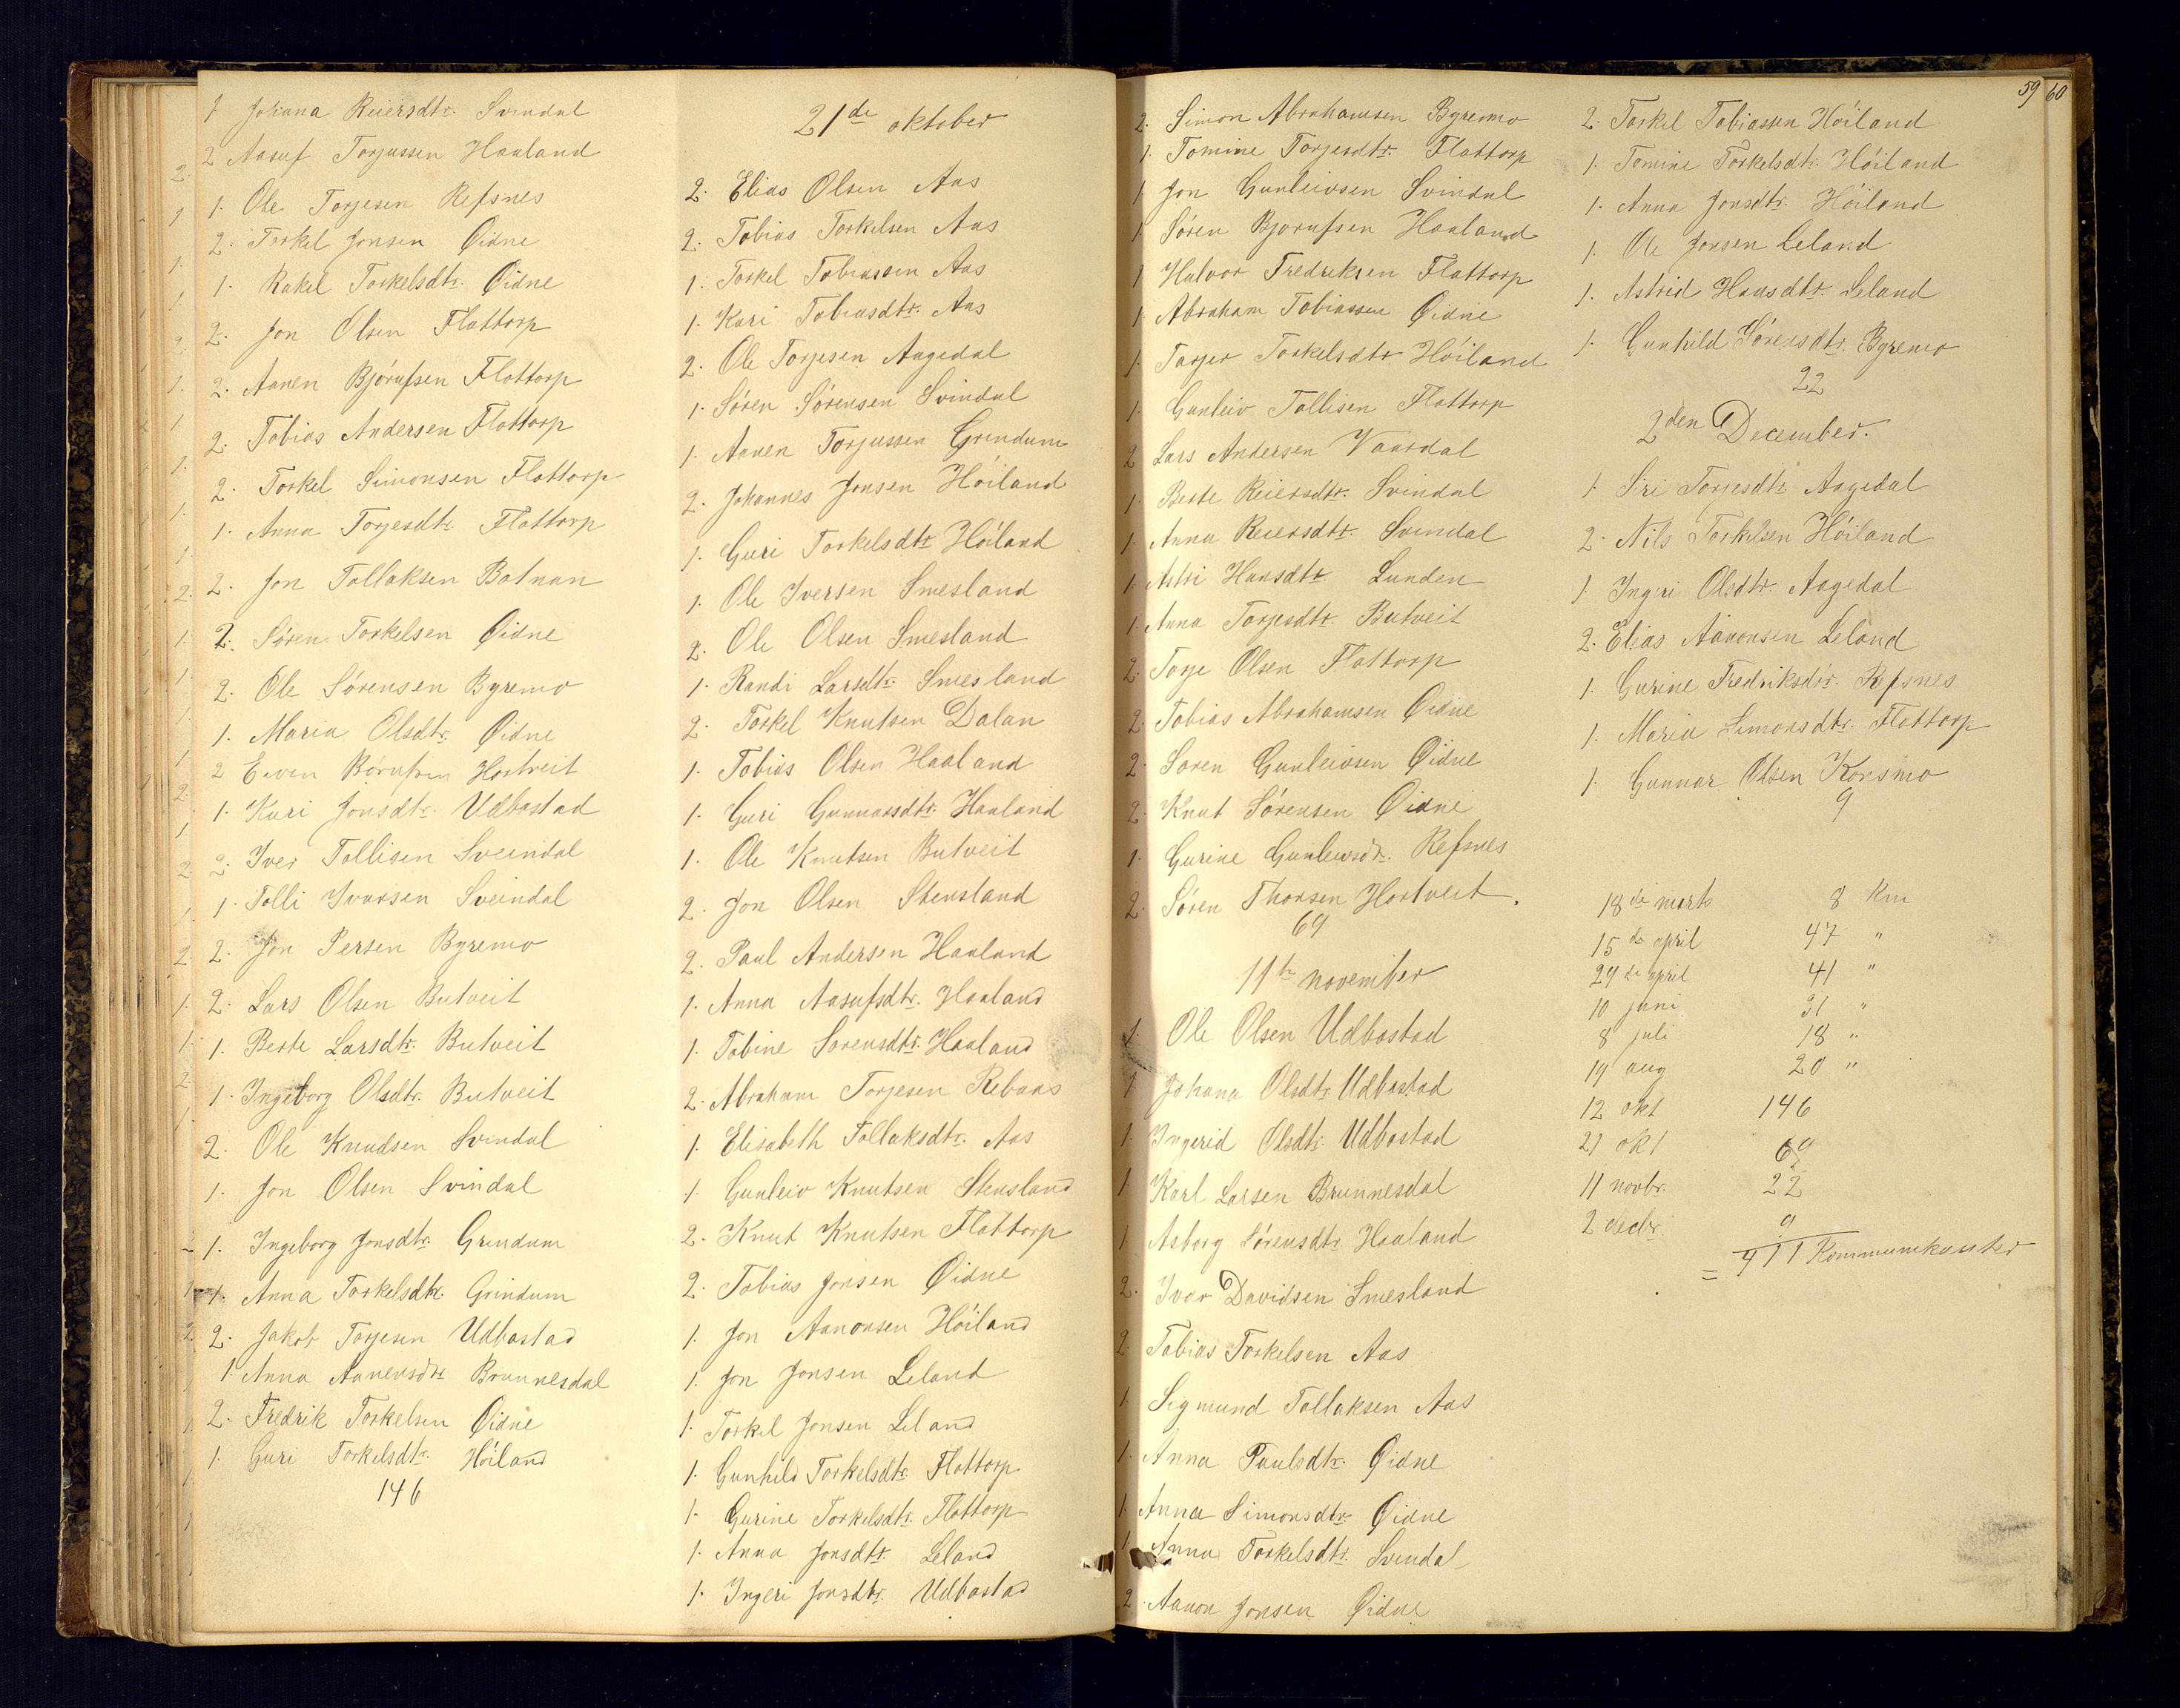 1 Johana Reiersdtr. Svindal
2 Aasuf Torjussen Haaland
1. Ole Torjesen Refsnes
2. Terkel Jonsen Øidne
1. Rakel Torkelsdtr. Øidne
2. Jon Olsen Flottorp
2. Aanen Bjórufsen Flottorp
2. Tobias Andersen Flottorp
2. Torkel Simonsen Flottorp
1. Anna Torjesdtr. Flottorp
2. Jon Tollaksen Botnan
2. Sóren Torkelsen Øidne
2. Ole Sórensen Byremo
1. Maria Olsdtr. Øidne
2 Even Hortveit
1. Kari Jonsdtr. Udbostad
2. Iver Tollisen Sveindal
1. Tolli Ivarsen Sveindal
2. Jon Persen Byremo
2. Lars Olsen Butveit
1. Berte Larsdtr. Butveit
1. Ingeborg Olsdtr. Butveit
2. Ole Knudsen Svindal
1. Jon Olsen Svindal
1. Ingeborg Jonsdtr. Grindum
1. Anna Torkelsdtr. Grindum
2. Jakob Torjesen Udbostad
1. Anna Aanensdtr Brunnesdal
2. Fredrik Torkelsen Øidne
1. Guri Torkelsdtr. Hóiland
146
21de oktober
2. Elias Olsen Aas
2. Tobias Torkelsen Aas
1. Torkel Tobiassen Aas
1. Kari Tobiasdtr. Aas
2. Ole Torjesen Aagedal
1. Sóren Sórensen Svindal
1. Aanen Torjussen Grindum
2. Johannes Jonsen Hóiland
1. Guri Torkelsdtr Hóiland
1. Ole Iversen Smesland
2. Ole Olsen Smesland
1. Randi Larsdtr. Smesland
2. Torkel Knutsen Dalan
1. Tobias Olsen Haaland
1. Guri Gunnarsdtr. Haaland
1. Ole Knutsen Butveit
2. Jon Olsen Stensland
2. Paul Andersen Haaland
1. Anna Aasufsdtr. Haaland
1. Tobine Sorensdtr. Haaland
2. Abraham Torjesen Rebaas
1. Elisabeth Tollaksdtr. Aas
1. Gunleiv Knutsen Stensland
2. Knut Knutsen Flottorp
2. Tobias Jonsen Øidne
1. Jon Aanonsen Hóiland
1. Jon Jonsen Leland
1. Torkel Jonsen Leland
1. Gunhild Torkelsdtr. Flottorp
1. Gurine Torkelsdtr. Flottorp
1. Anna Jonsdtr. Leland
1. Ingeri Jonsdtr. Udbostad
59 60
2. Simon Abrahamsen Byremo
1. Tomine Torjesdtr. Flottorp
1 Jon Gunleivsen Svindal
1 Sóren Bjorufsen Haaland
1 Halvor Fredriksen Flottorp
1 Abraham Tobiassen Øidne
1. Torjer Torkelsdtr Hóiland
1. Gunleiv Tollisen Flottorp
2 Lars Andersen Vaardal
1. Berte Reiersdtr. Svindal
1. Anna Reiersdtr. Svindal
1. Astri Hansdtr Lunden
1. Anna Torjesdtr. Butveit
2. Torje Olsen Flottorp
2. Tobias Abrahamsen Øidne
2. Soren Gunleivsen Øidne
2. Knut Sórensen Øidne
1. Gurine Gunleivsdtr. Refsnes
2. Sóren Thorsen Hortveit.
69
11te november
1. Ole Olsen Udbostad
1 Johana Olsdtr. Udbostad
1. Ingerid Olsdtr. Udbostad
1 Karl Larsen Brunnesdal
1 Asborg Sórensdtr. Haaland
2. Ivar Davidsen Smesland
2. Tobias Torkelsen Aas
1. Sigmund Tollaksen Aas
1. Anna Paulsdtr. Øidne
1. Anna Simonsdtr. Øidne
1. Anna Torkelsdtr. Svindal
2. Aanon Jonsen Øidne
2. Torkel Tobiassen Hóiland
1. Tomine Torkelsdtr. Hóiland
1. Anna Jonsdtr. Hóiland
1. Ole Jonsen Leland
1. Astrid Hansdtr. Leland
1. Gunhild Sórensdtr. Byremo
22
2den December.
1. Siri Torjesdtr. Aagedal
2. Nils Torkelsen Hóiland
1 Ingri Olsdtr. Aagedal
2. Elias Aanonsen Leland
1. Gurine Fredriksdtr. Refsnes
1. Maria Simonsdtr. Flottorp
1. Gunnar Olsen Korsmo
9
18de marts 8 Km
15de april 47 "
29de april 41 "
10 juni 31 "
8 juli 18 "
19 aug 20 "
12 okt 146
21 okt 69
11 novbr. 22
2 decbr. 9
= 411 Kommunikanter